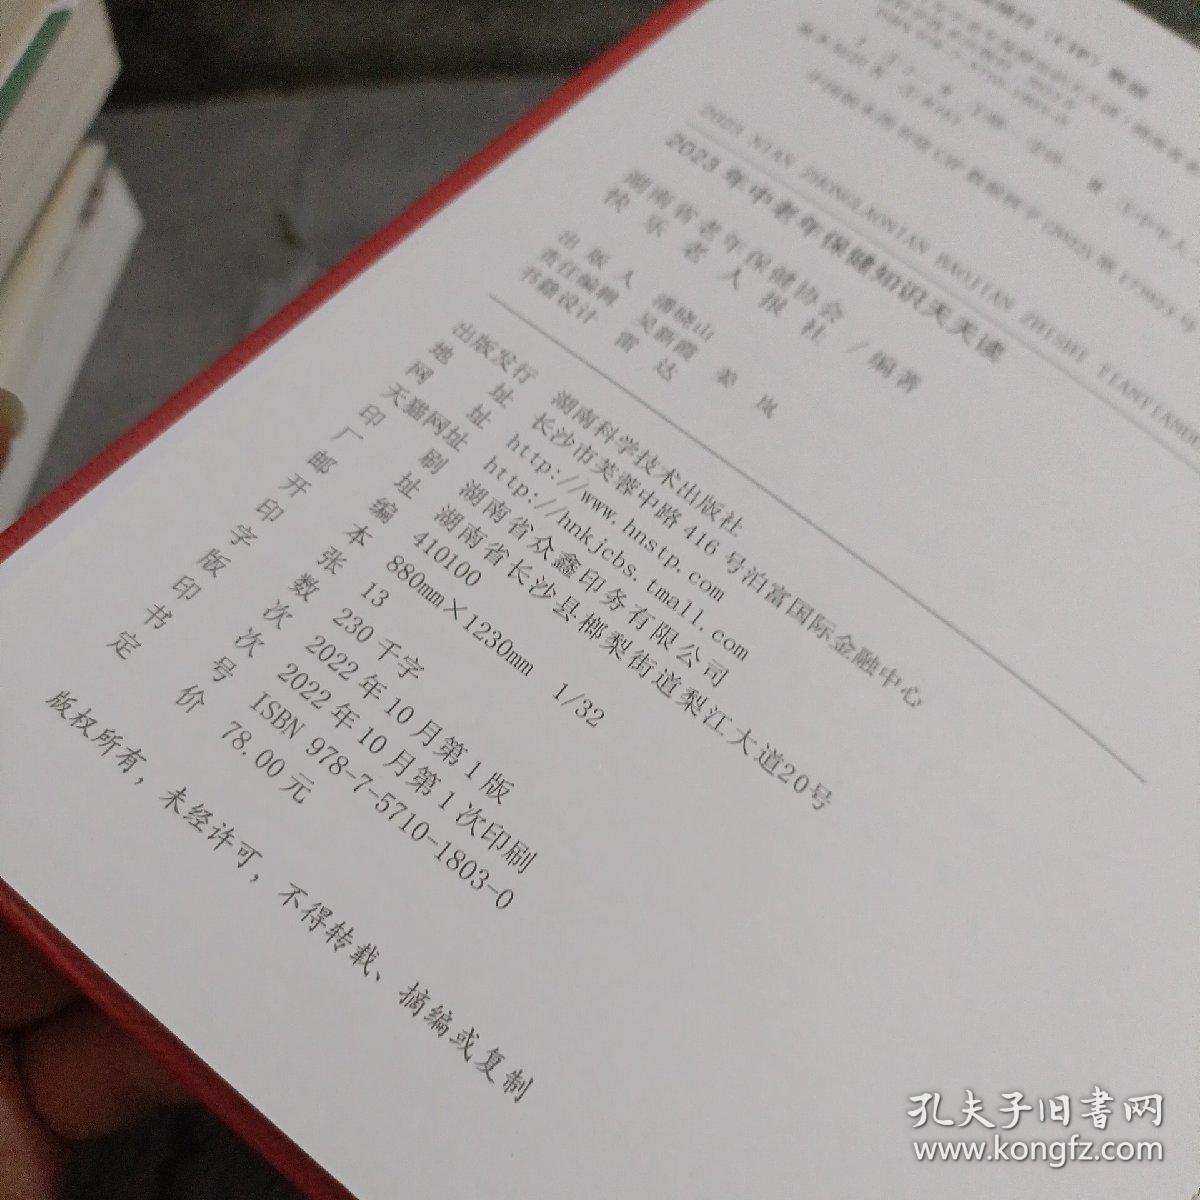 2023 NIAN ZHONGLAONIAN BAOJIAN ZHISHI TIANTIANDU
2023 年中老年保健知识天天读
湖南省老年保健协会
快乐老人报社 / 编著
出版人 潘晓山
责任编辑 吴新霞 姜岚
书籍设计 雷达
出版发行 湖南科学技术出版社
地址 长沙市芙蓉中路 416 号泊富国际金融中心
网址 http://www.hnstp.com
天猫网址 http://hnkjcbs.tmall.com
印刷 湖南省众鑫印务有限公司
厂址 湖南省长沙县榔梨街道梨江大道20号
邮编 410100
开本 880mm×1230mm 1/32
印张 13
字数 230 千字
版次 2022 年 10 月第 1 版
印次 2022 年 10 月第 1 次印刷
书号 ISBN 978-7-5710-1803-0
定价 78.00 元
版权所有，未经许可，不得转载、摘编或复制
孔夫子旧书网
www.kongfz.com